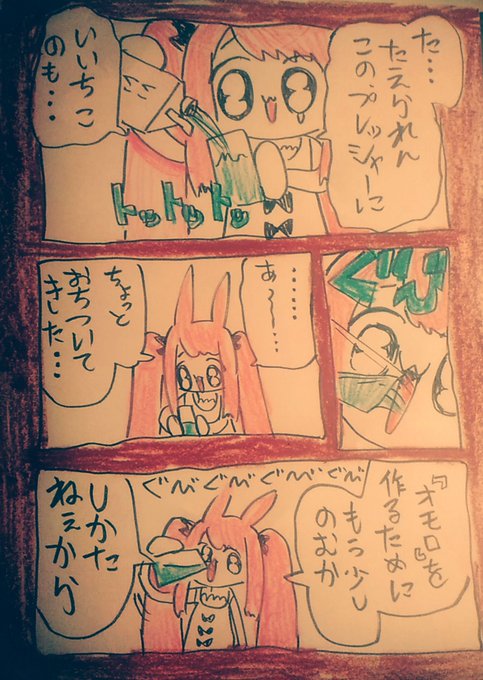 た…
たえられん
この、プレッシャーに
いいちこ
のも…
トットットッ
ぐび
……
あ〜〜…
ちょっと
おちついて
きした…
『オモロ』を
作るために
もう少し
のむか
ぐびぐびぐびぐび
しかた
ねぇから